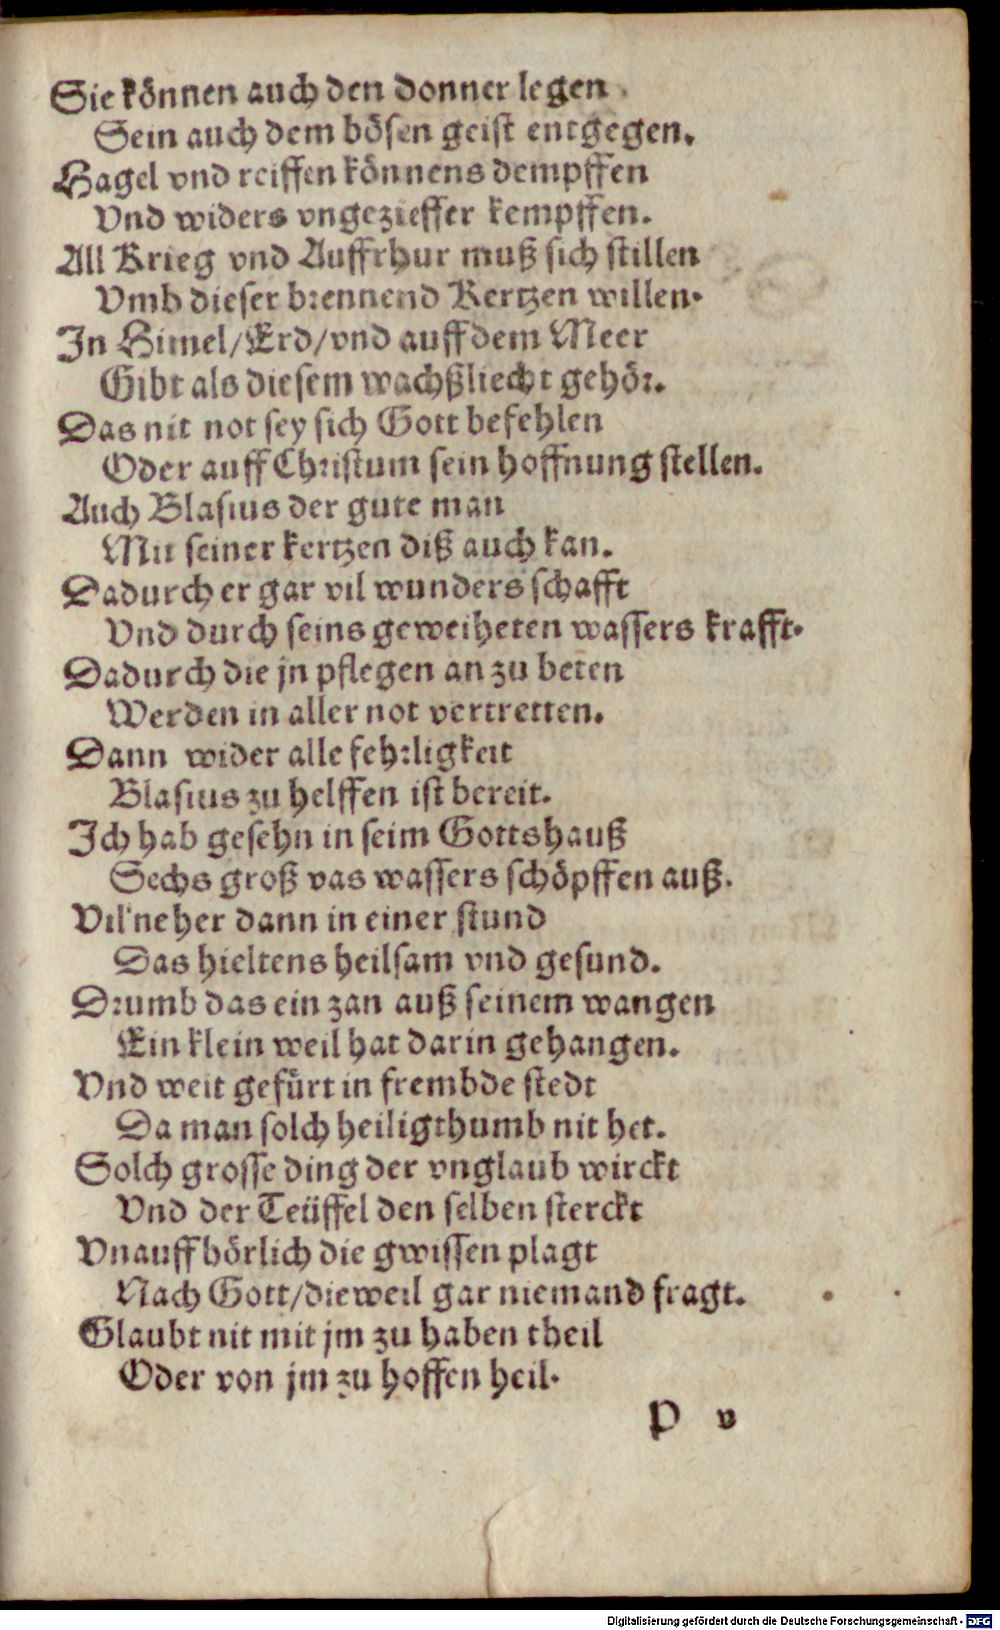 Sie können auch den donner legen
Sein auch dem bösen geist entgegen.
Hagel vnd reiffen könnens dempffen
Vnd widers vngezieffer kempffen.
All Krieg vnd Auffrhur muß sich stillen
Vmb dieser brennend Kertzen willen.
In Himel/Erd/vnd auff dem Meer
Gibt als diesem wachßliecht gehör.
Das nit not sey sich Gott befehlen
Oder auff Christum sein hoffnung stellen.
Auch Blasius der gute man
Mit seiner kertzen diß auch kan.
Dadurch er gar vil wunders schafft
Vnd durch seins geweiheten wassers krafft.
Dadurch die jn pflegen an zu beten
Werden in aller not vertretten.
Dann wider alle fehrligkeit
Blasius zu helffen ist bereit.
Ich hab gesehn in seim Gottshauß
Sechs groß vas wassers schöpffen auß.
Vil neher dann in einer stund
Das hieltens heilsam vnd gesund.
Drumb das ein zan auß seinem wangen
Ein klein weil hat darin gehangen.
Vnd weit gefürt in frembde stedt
Da man solch heiligthumb nit het.
Solch grosse ding der vnglaub wirckt
Vnd der Teüffel den selben sterckt
Vnauffhörlich die gwissen plagt
Nach Gott/dieweil gar niemand fragt.
Glaubt nit mit jm zu haben theil
Oder von jm zu hoffen heil.
P v
Digitalisierung gefördert durch die Deutsche Forschungsgemeinschaft - DFG